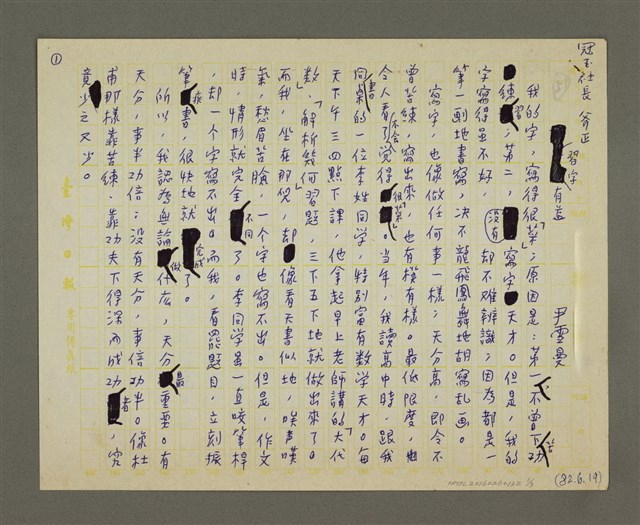 ①
冠玉社長 斧正
習字有益
尹雪曼
我的字，寫得很「菜」；原因是：第一不曾下功苦
練習；第二，沒有寫字天才。但是，我的
字寫得並不好，却不难辨識；因為都是一
筆一劃地書寫，决不龍飛鳳舞地胡寫乱画。
寫字，也像做任何事一樣；天分高，即令不
曾苦練，寫出來，也有模有樣。最低限度，
令人看了不会覚得「很菜」。当年，我讀高中時，跟我
同桌的一位李姓同学，特別富有数学天才。每
天下午三四點下課，他拿起早上老師講的「大代
数」、「解析幾何習題」，三下五下地就做出來了。
而我，坐在那兒，却像看天書似地，唉声嘆
氣，愁眉苦臉，一个字也寫不出。但是，作文
時，情形就完全不同了。李同学虽一直咬筆桿
，却一个字寫不出。而我，看罷題目，立刻振
筆疾書，很快地就完成了。
所以，我認為無論做什么，天分最重要。有
天分，事半功倍；没有天分，事倍功半。像杜
甫那樣靠苦練、靠功夫下得深而成功者，究
竟少之又少。
(82.6.19)
臺灣日報